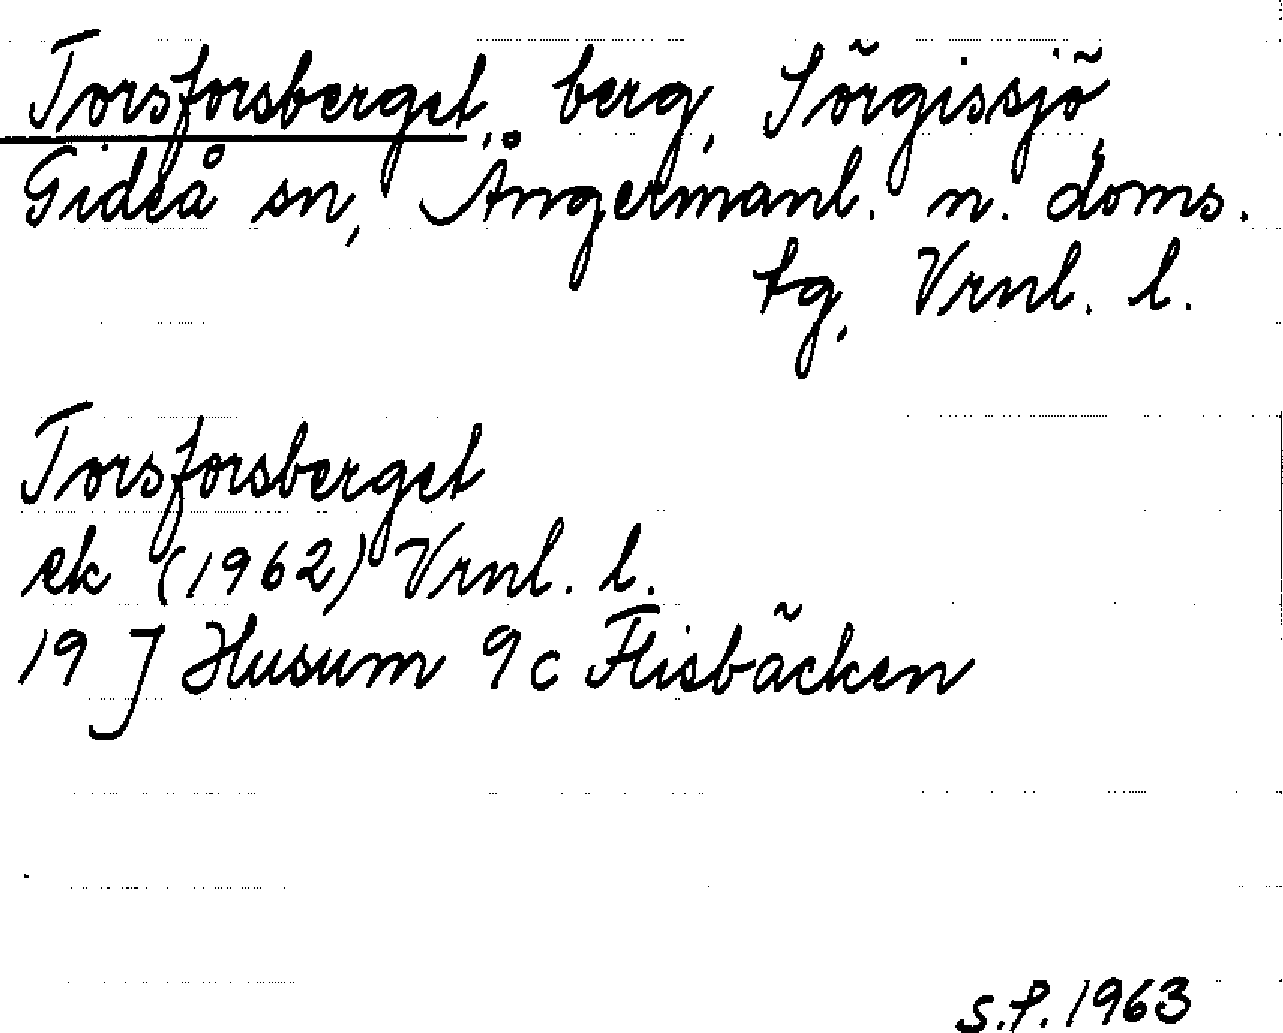 Torsforsberget, berg, Sörgissjö,
Gideå sn, Ångermanl. n. doms.
tg, Vrnl. l.
Torsforsberget
ek (1962) Vrnl. l.
19 J Husum 9c Flisbäcken
S.P. 1963